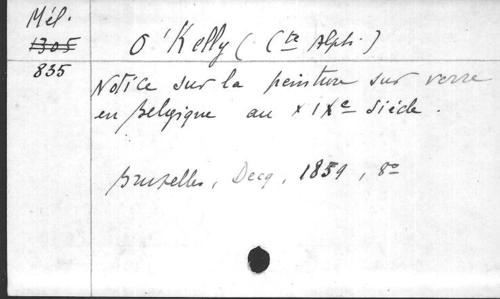 Mél.
1305
835
O'Kelly (Cte Alph.)
Notice sur la peinture sur verre
en Belgique au XIXe siècle.
Bruxelles, Decq, 1859, 8o